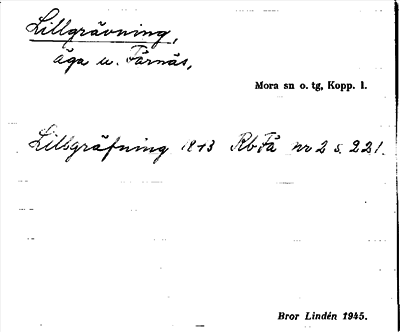 Lillgrävning,
äga u. Färnäs,
Mora sn o. tg, Kopp. l.
Lillgräfning 1843 Rb Fä nr 2 s. 221.
Bror Lindén 1945.